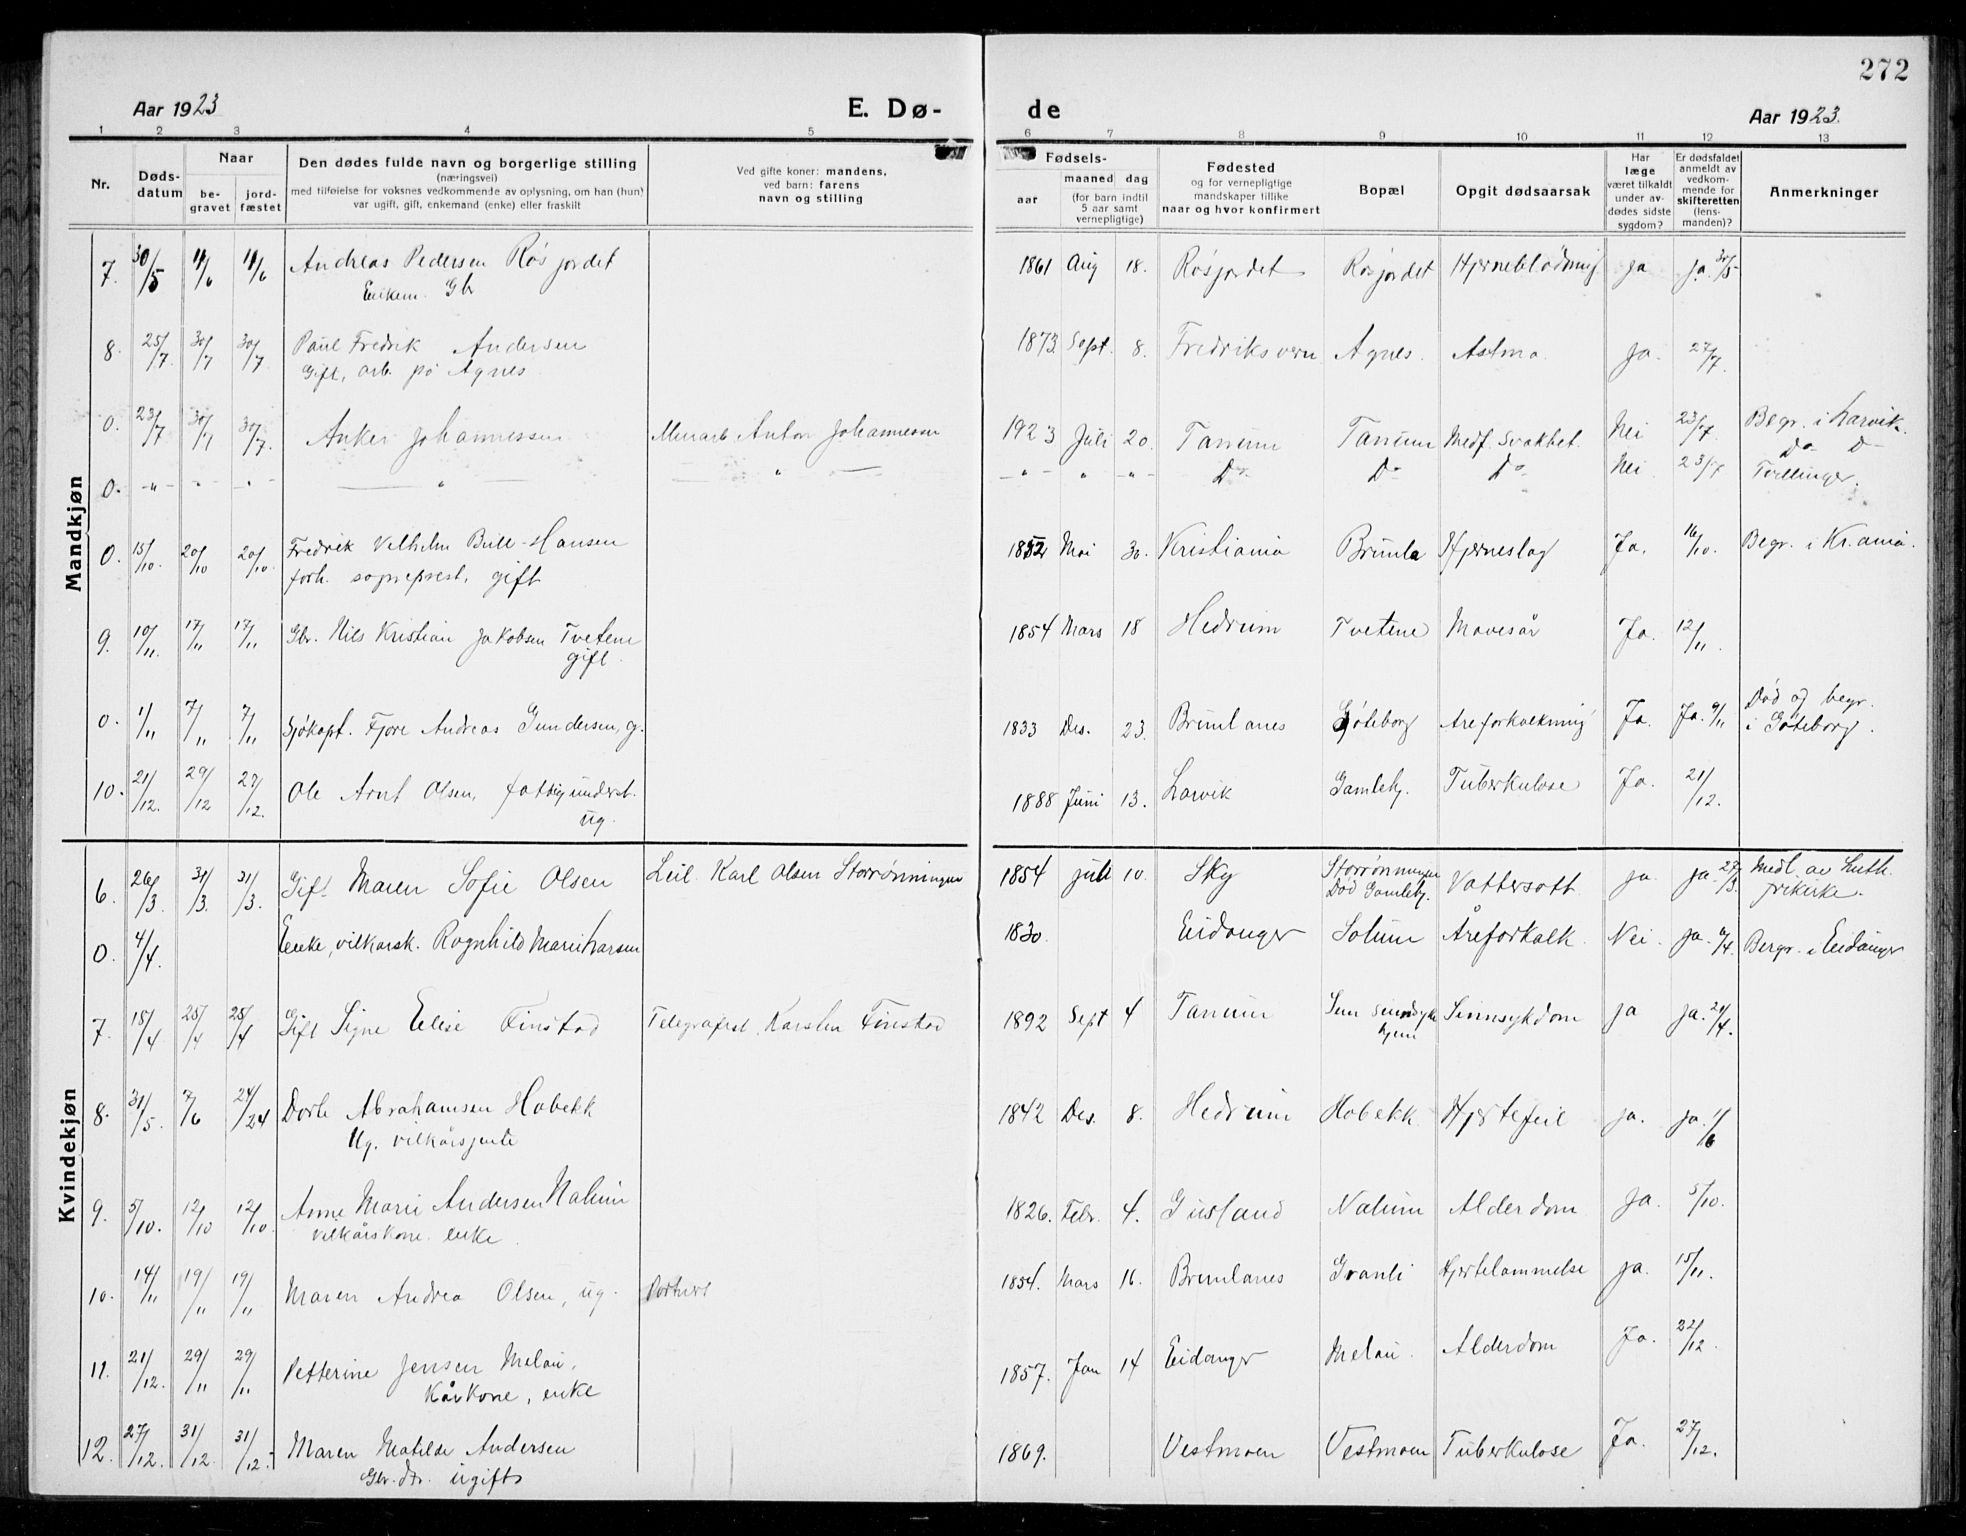 272
Aar 1923 E. Dø- de Aar 1923.
1 2 3 4 5 6 7 8 9 10 11 12 13
Nr.
Døds-
datum
Naar
be-
gravet
jord-
fæstet
Den dødes fulde navn og borgerlige stilling
(næringsvei)
med tilføielse for voksnes vedkommende av oplysning, om han (hun)
var ugift, gift, enkemand (enke) eller fraskilt
Ved gifte koner: mandens,
ved barn: farens
navn og stilling
Fødsels-
aar
maaned dag
(for barn indtil
5 aar samt
vernepligtige)
Fødested
og for vernepligtige
mandskaper tillike
naar og hvor konfirmert
Bopæl
Opgit dødsaarsak
Har
læge
været tilkaldt
under av-
dødes sidste
sygdom?
Er dødsfaldet
anmeldt av
vedkom-
mende for
skifteretten
(lens-
manden)?
Anmerkninger
Mandkjøn
7. 30/5 4/6 4/6 Andreas Pedersen Røsjordet 1861 Aug 18. Røsjordet Røsjordet Hjerneblødning ja ja. 30/5
Enkem. Gb
8. 25/7 30/7 30/7 Paul Fredrik Andersen 1873 Sept. 8. Fredriksvern Agnes. Astma ja. 27/7
Gift, arb. på Agnes
0. 23/7 30/7 30/7 Anker Johannessen Murarb. Anton Johannessen 1923 Juli 20. Tanum Tanum Medf. svakhet. Nei 23/7 Begr. i Larvik.
0. -"- -"- -"- " " -"- " -"- Do Do Do Nei 23/7 Do D
Tvillinger.
0. 15/10 20/10 20/10 Fredrik Vilhelm Bull-Hansen 1852 Mai 30. Kristiania Brunla Hjerneslag Ja. 16/10. Begr. i Kr.ania.
forh. sogneprest, gift
9. 10/11. 17/11 17/11 Gbr. Nils Kristian Jakobsen Tvetene 1854 Mars 18 Hedrum Tvetene Mavesår Ja. 12/11.
gift.
0. 1/11 7/11 7/11 Sjøkapt. Fjore Andreas Gundersen, g. 1833 Des. 23. Brunlanes Gøteborg Åreforkalkning Ja. Ja. 9/11 Død og begr.
i Gøteborg.
10. 21/12. 29/12 29/12. Ole Arnt Olsen, fattigunderst. 1888 Juni 13. Larvik Gamleby. Tuberkulose Ja. 21/12.
ug.
Kvindekjøn
6. 26/3 31/3. 31/3. Gift Maren Sofie Olsen Leil. Karl Olsen Storrønningen 1854 juli 10. Sky Storrønningen Vattersott. ja. ja. 27/3. Medl. av Luth.
Død Gamleby. frikirke.
0 4/4. Enke, vilkårsk. Ragnhild Marie Larsen 1830. Eidanger Solum Åreforkalk. Nei. ja. 9/4 Bergr. i Eidanger
7. 15/4 25/4 25/4 Gift Signe Elise Finstad Telegrafist Karsten Finstad 1892 Sept 4 Tanum Sem sindsyke Sinnsykdom ja ja. 24/4.
hjem
8. 31/5. 7/6 24/24 Dorte Abrahamsen Hobekk 1842 Des. 8. Hedrum Hobekk Hjertefeil ja. ja. 1/6
Ug. vilkårsjente
9. 5/10. 12/10 12/10. Anne Marie Andersen Nalum 1826. Febr. 4. Gusland Nalum Alderdom ja. 5/10.
vilkårskone. enke.
10. 14/11 19/11 19/11 Maren Andrea Olsen, ug. 1854. Mars 16. Brunlanes Granli Hjertelammelse ja. 15/11.
11. 21/12. 29/11 29/11 Petterine Jensen Melau, 1857. Jan 14 Eidanger Melau. Alderdom Ja. 22/12.
Kårkone, enke
12. 27/12. 31/12. 31/12. Maren Matilde Andersen 1869. Vestmoen Vestmoen Tuberkulose Ja. 27/12.
Gbr. dtr. ugift